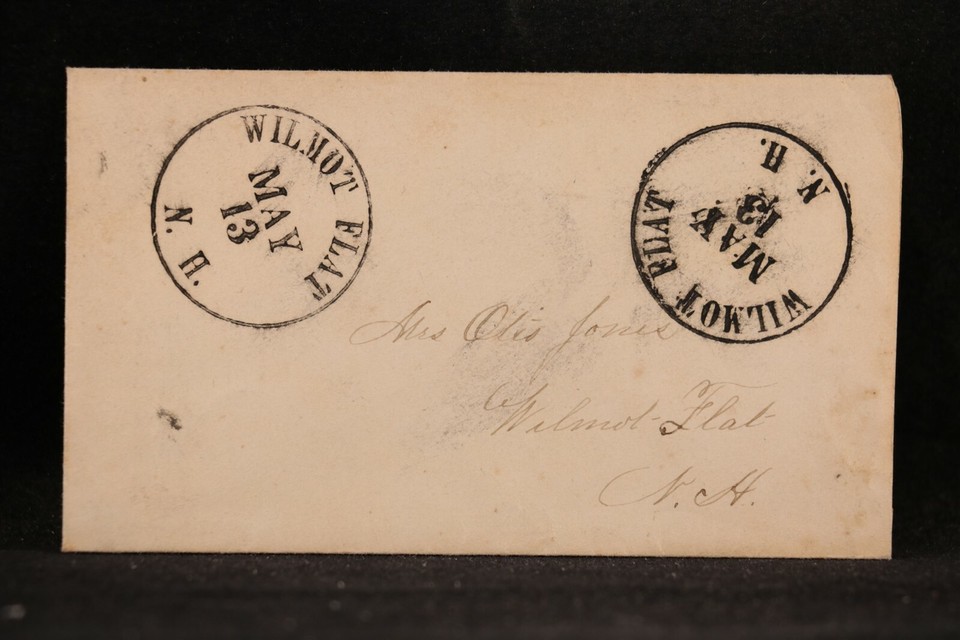 WILMOT FLAT
MAY
13
N. H.
WILMOT FLAT
MAY
13
N. H.
Mrs Otis Jones
Wilmot Flat
N. H.